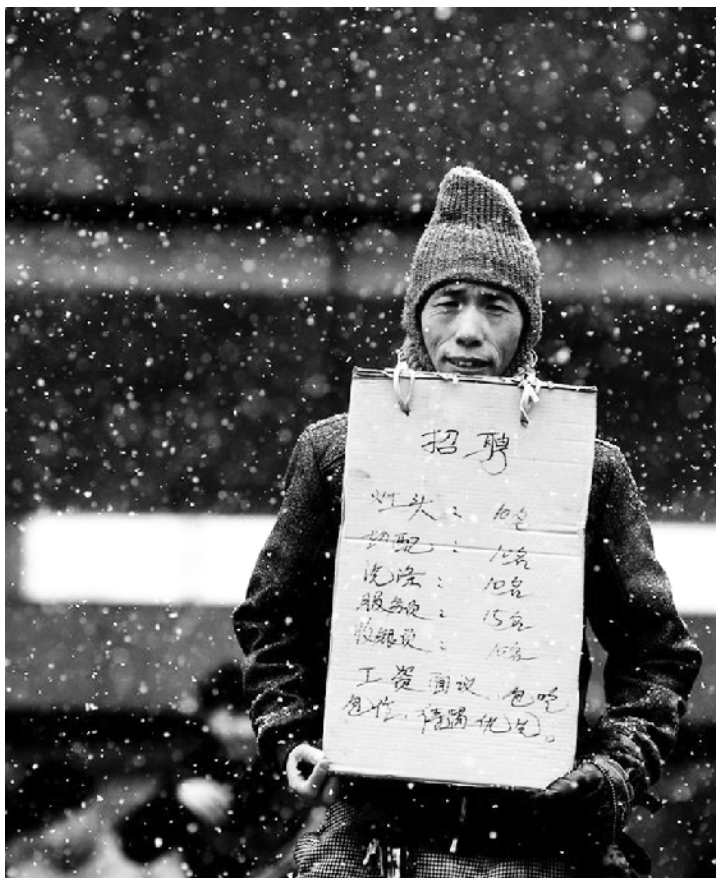 招聘
灶头：10名
切配：10名
洗涤：10名
服务员：15名
收银员：10名
工资面议、包吃
包住、情侣优先。